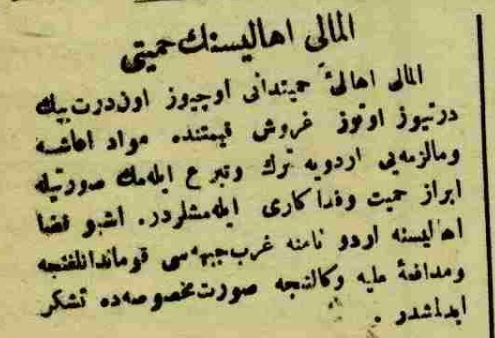 المالی اهالیسنك حمیتی
المالی اهالیٔ حمیتدانی اوچیوز اون‌درت بیك
درتیوز اوتوز غروش قیمتنده مواد اعاشه
ومالزمه‌یی اردویه ترك وتبرع ایله‌مك صورتیله
ابراز حمیت وفداكاری ایله‌مشلردر. اشبو قضا
اهالیسنه اردو نامنه غرب‌جبهه‌سی قوماندانلغنجه
ومدافعهٔ ملیه وكالتنجه صورت‌مخصوصه‌ده تشكر
ایدلمشدر .